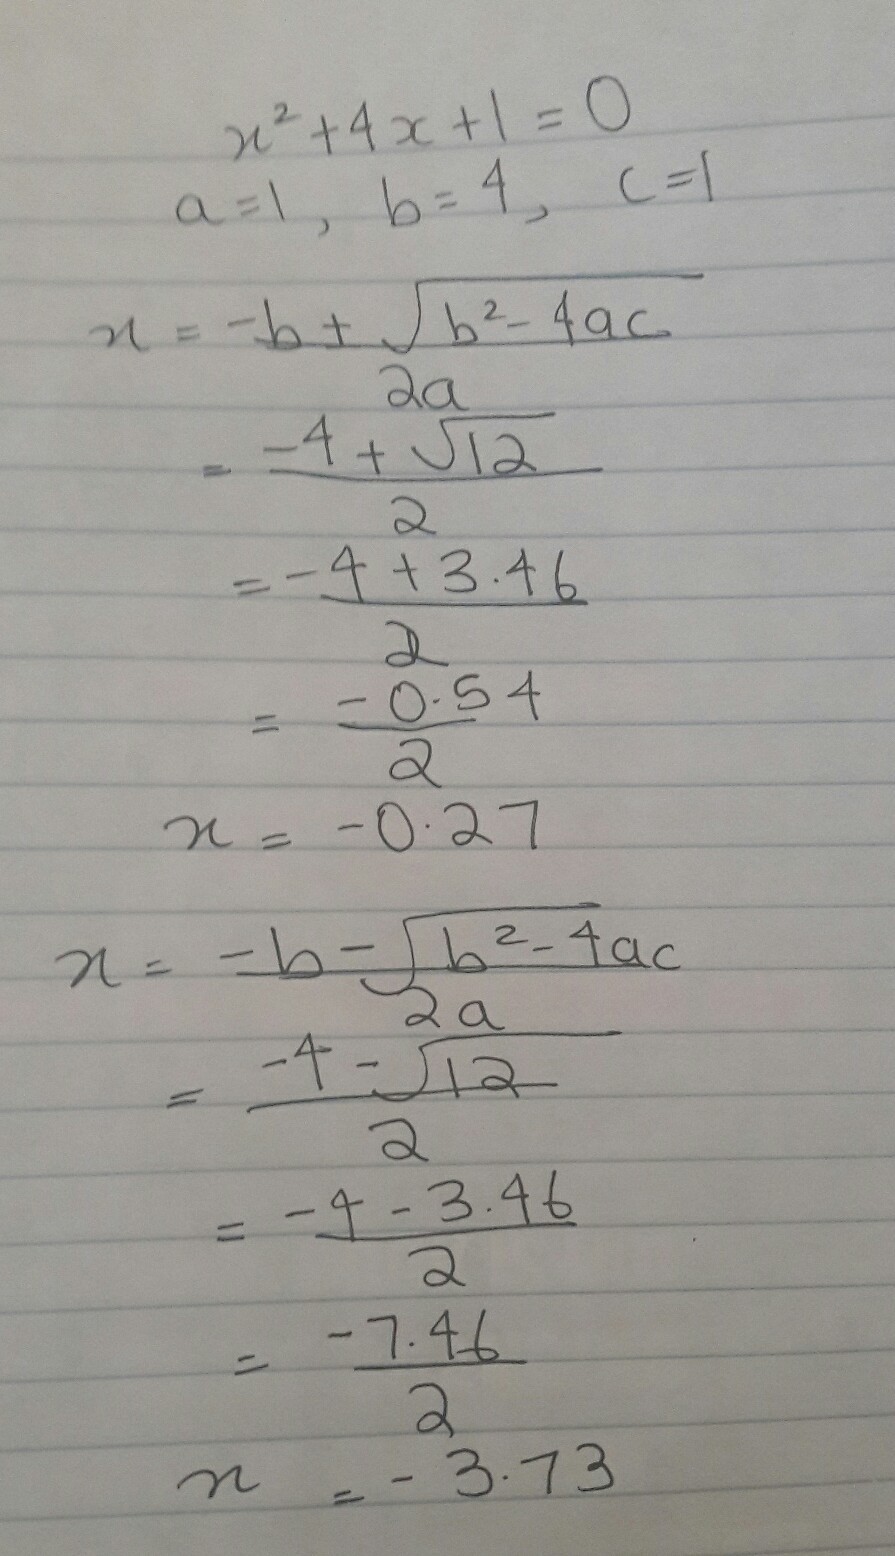 x² + 4x + 1 = 0
a = 1, b = 4, c = 1
x = -b + √(b² - 4ac)
2a
= -4 + √12
2
= -4 + 3.46
2
= -0.54
2
x = -0.27
x = -b - √(b² - 4ac)
2a
= -4 - √12
2
= -4 - 3.46
2
= -7.46
2
x = -3.73